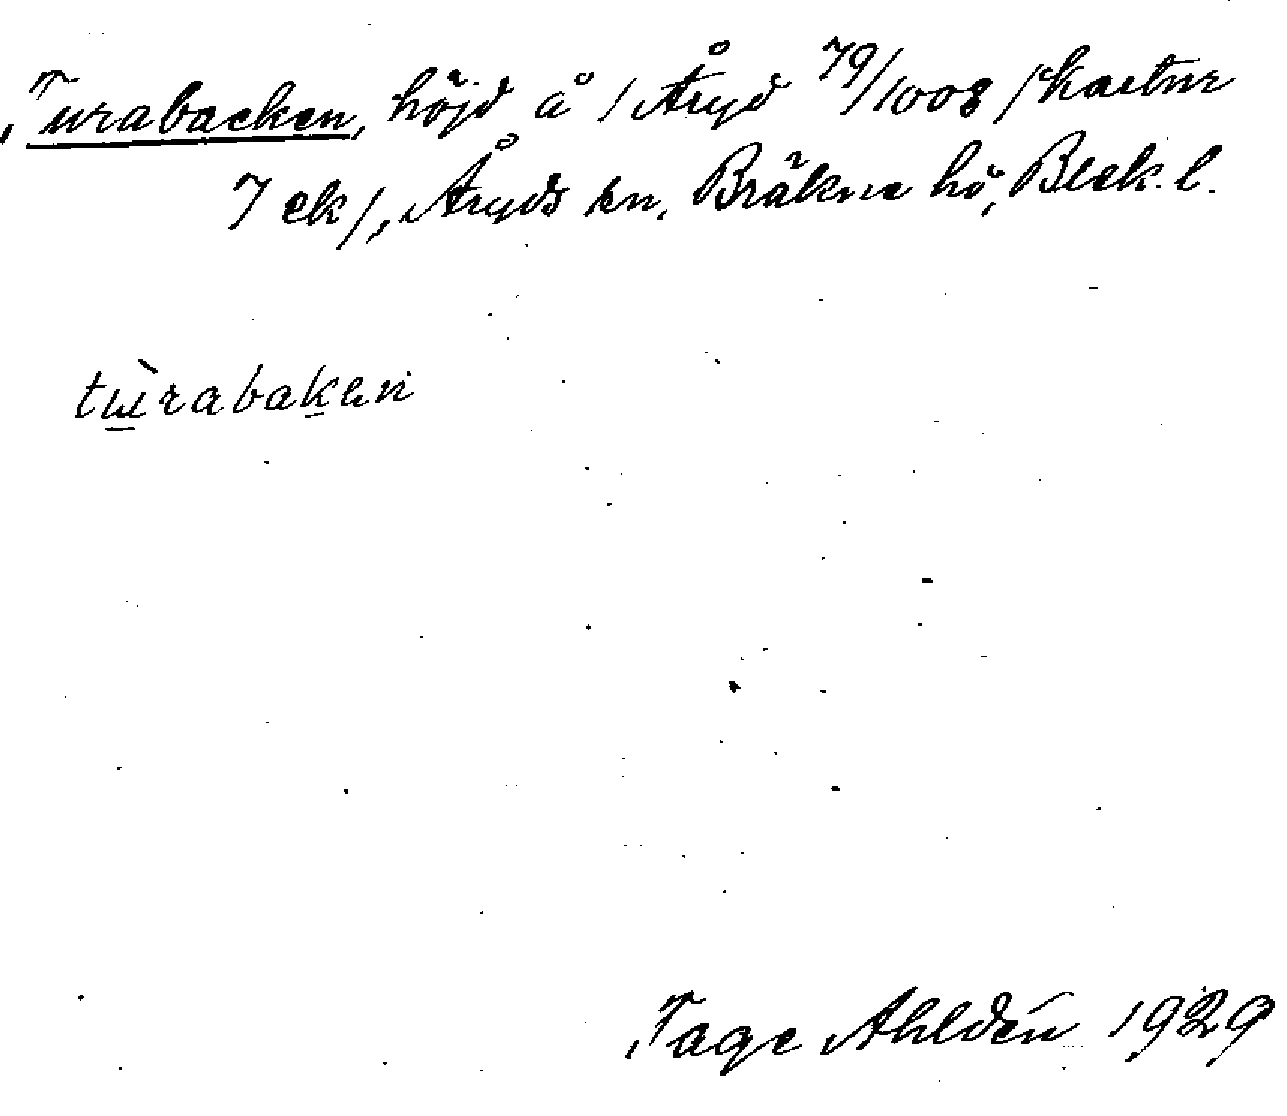 Turabacken, höjd å 1 Åryd 79/1008 /kartnr
7 ek/, Åryds sn, Bräkne hd, Blek. l.
tùrabaken
Tage Ahldén 1929